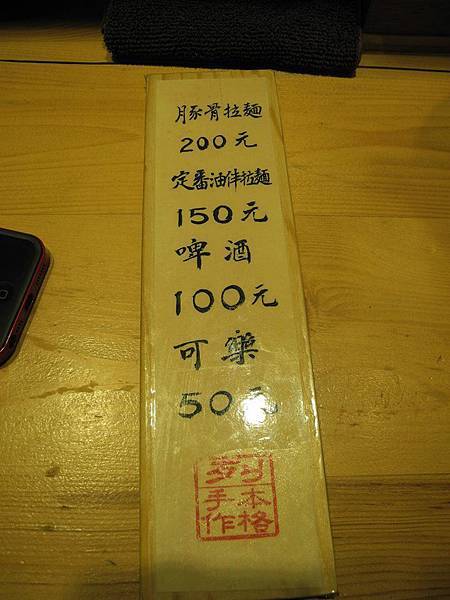 豚骨拉麵
200元
定番油伴拉麵
150元
啤酒
100元
可樂
50元
本格
手作